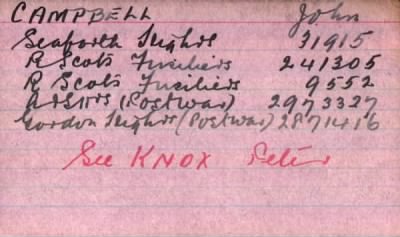 CAMPBELL John
Seaforth Highrs 31915
R Scots Fusiliers 241305
R Scots Fusiliers 9552
A&SHrs (Postwar) 2973327
Gordon Highrs (Postwar) 2871416
See KNOX Peter